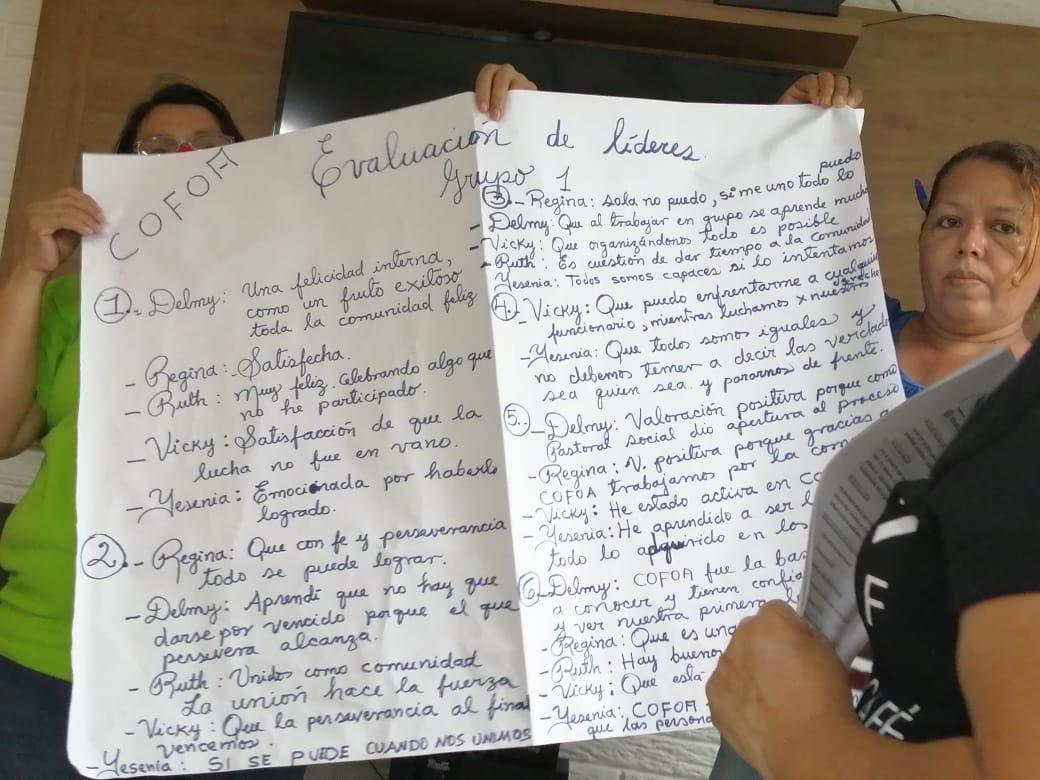 COFOA
Evaluación de líderes.
Grupo 1
1.- Delmy: Una felicidad interna,
como un fruto exitoso
toda la comunidad feliz
- Regina: Satisfecha.
- Ruth: Muy feliz. Celebrando algo que
no he participado.
- Vicky: Satisfacción de que la
lucha no fue en vano.
- Yesenia: Emocionada por haberlo
logrado.
2.- Regina: Que con fe y perseverancia
todo se puede lograr.
- Delmy: Aprendí que no hay que
darse por vencido porque el que
persevera alcanza.
- Ruth: Unidos como comunidad
La unión hace la fuerza
- Vicky: Que la perseverancia al final
vencemos.
- Yesenia: SI SE PUEDE CUANDO NOS UNIMOS
3.- Regina: sola no puedo, si me uno todo lo puedo
- Delmy: Que al trabajar en grupo se aprende mucho
- Vicky: Que organizándonos todo es posible
- Ruth: Es cuestión de dar tiempo a la comunidad
Yesenia: Todos somos capaces si lo intentamos
4.- Vicky: Que puedo enfrentarme a cualquier
funcionario, mientras luchamos x nuestro derecho
- Yesenia: Que todos somos iguales y
no debemos temer a decir las verdades
sea quien sea y pararnos de frente.
5.- Delmy: Valoración positiva porque como
Pastoral social dio apertura al proceso
- Regina: V. positiva porque gracias a
COFOA trabajamos por la com
- Vicky: He estado activa en CO
- Yesenia: He aprendido a ser l
todo lo adquirido en los
6.- Delmy: COFOA fue la bas
a conocer y tienen confia
y ver nuestra primera l
- Regina: Que es una
- Ruth: Hay bueno
- Vicky: Que está
- Yesenia: COFOA
que las persona
CAFÉ